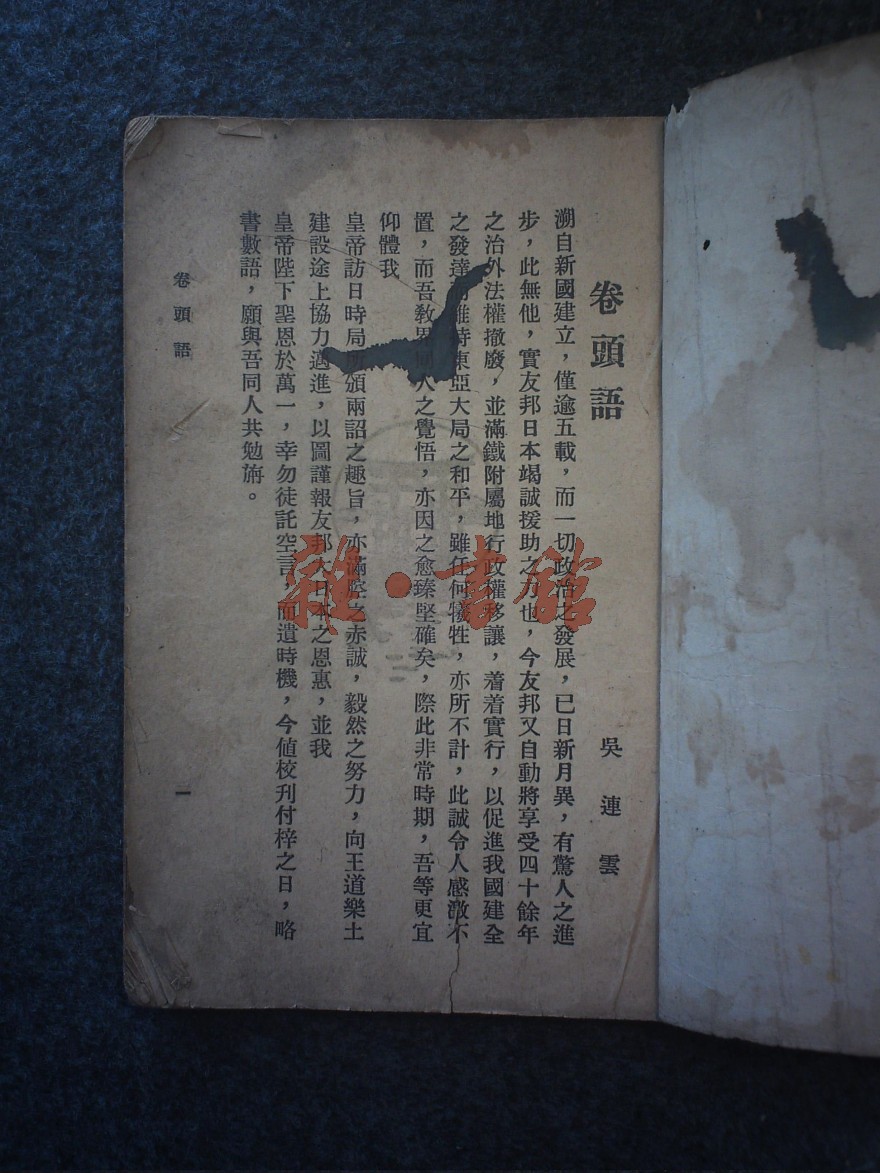 卷頭語
吳連雲
溯自新國建立，僅逾五載，而一切政治之發展，已日新月異，有驚人之進
步，此無他，實友邦日本竭誠援助之力也，今友邦又自動將享受四十餘年
之治外法權撤廢，並滿鐵附屬地行政權移讓，着着實行，以促進我國建全
之發達，維持東亞大局之和平，雖任何犧牲，亦所不計，此誠令人感激不
置，而吾教界同人之覺悟，亦因之愈臻堅確矣，際此非常時期，吾等更宜
仰體我
皇帝訪日時局所頒兩詔之趣旨，亦滿腔之赤誠，毅然之努力，向王道樂土
建設途上協力邁進，以圖謹報友邦大日本之恩惠，並我
皇帝陛下聖恩於萬一，幸勿徒託空言，而遺時機，今値校刋付梓之日，略
書數語，願與吾同人共勉旃。
卷頭語
一
雜·書館